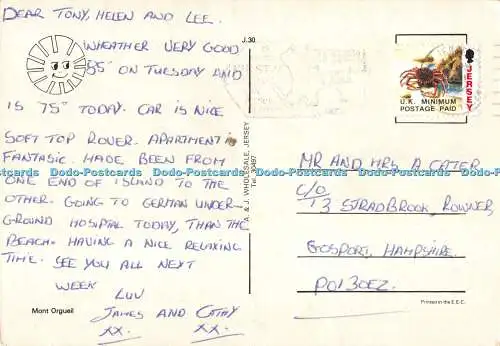 DEAR TONY, HELEN AND LEE.
WHEATHER VERY GOOD
85° ON TUESDAY AND
IS 75° TODAY. CAR IS NICE
SOFT TOP ROVER. APARTMENT IS
FANTASIC. MADE BEEN FROM
ONE END OF ISLAND TO THE
OTHER. GOING TO GERMAN UNDER-
GROUND HOSPITAL TODAY, THAN THE
BEACH. HAVING A NICE RELAXING
TIME. SEE YOU ALL NEXT
WEEK
LUV
JAMES AND CATHY
xx. xx.
Mont Orgueil
J.30
A. & J. WHOLESALE, JERSEY
U.K. MINIMUM
POSTAGE PAID
JERSEY
MR AND MRS A CATER
C/O
13 STRADBROOK, ROWNER,
GOSPORT, HAMPSHIRE.
PO13 0EZ.
Printed in the E.E.C.
Dodo-Postcards Dodo-Postcards Dodo-Postcards Dodo-Postcards Dodo-Postcards Dodo-Postcards